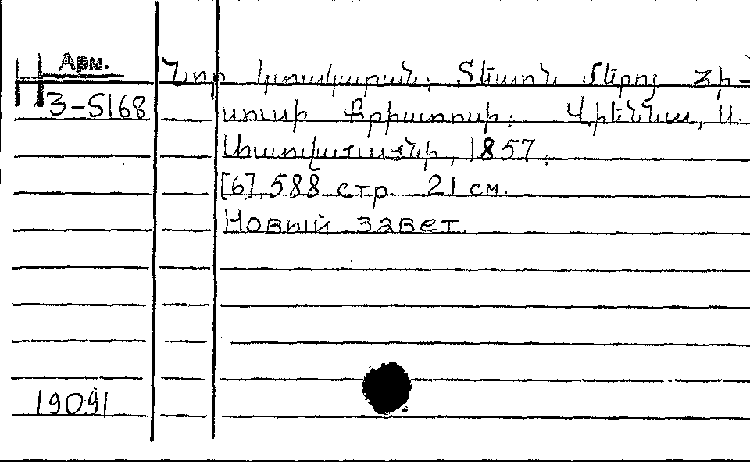 Арм.
Н
3-5168
Նոր կտակարան. Տեառն մերոյ Յի-
սուսի Քրիստոսի. Վիեննա, Ս.
Աստվածածնի, 1857.
[6], 588 стр. 21 см.
Новый завет.
19091